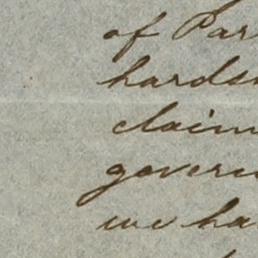 of Par
hards
claim
govern
we ha